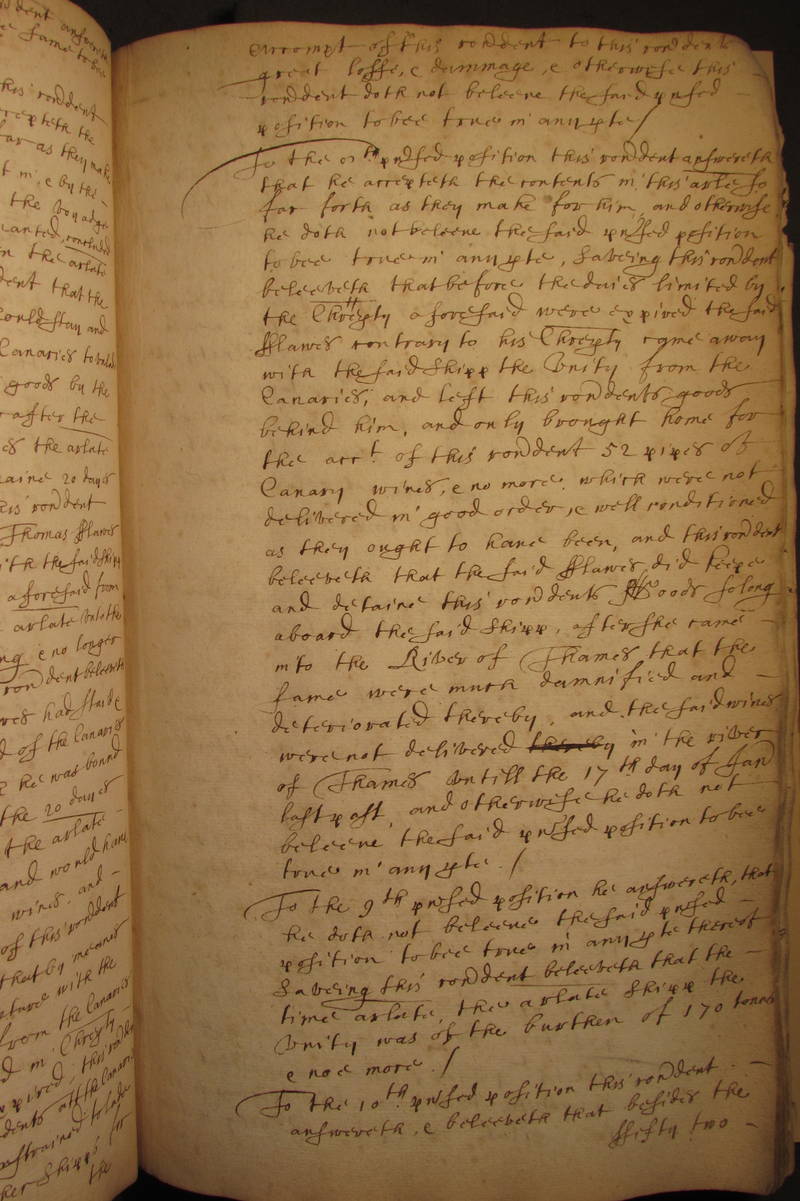 dent answereth
same to bee
this rondent
accepteth the
far as they make
t in, & by the -
the voyage
anted, concluded
in the arlate
dent that the
could stay and
Canaries to rela
goods by the
after the
es the arlate
aine 20 dayes
his rondent
Thomas fflawes
ith the said shipp
aforesaid from
arlate unto the
ng & no longer
rondent beleeveth
wes had staide
d of the Canaries
he was bound
the 20 dayes
the arlate -
and would have
wines, and -
of this rondent
that by meanes
with the
from the Canaries
d in Chrepty
xpired, this rondent
dents att the Canar
nstrained to lade
her shipps for
the
accompt of this rondent to this rondents
great losse, & dammage, & otherwise this -
rondent doth not beleeve the said pnsed -
position to bee true in any pte /
To the 8th pnsed position this rondent answereth
that he accepteth the contents in this arle so
far forth as they make for him, and otherwise
he doth not beleeve the said pnsed position
to bee true in any pte, Saveing this rondent
beleeveth that before the daies limited by
the Chrepty aforesaid were expired the said
fflawes contrary to his Chrepty came away
with the said Shipp the Unity from the
Canaries, and left this rondents goods
behind him, and only brought home for
the acct. of this rondent 52 pipes of
Canary wines, & no more, which were not
delivered in good order, & well conditioned
as they ought to have been, and this rondent
beleeveth that the said fflawes did keepe
and detaine this rondents Goods so long
aboard the said shipp, after she came -
into the River of Thames that the
same were much damnified and -
deteriorated thereby, and the said wines
were not delivered thereby in the river
of Thames untill the 17th day of Jan
last past, and otherwise he doth not
beleeve the said pnsed position to bee
true in any pte. /
To the 9th pnsed position he answereth, that
he doth not beleeve the said pnsed -
position to bee true in any pte thereof
Saveing this rondent beleeveth that the -
time arlate, the arlate shipp the
Unity was of the burthen of 170 tonnes
& noe more. /
To the 10th pnsed position this rondent - -
answereth, & beleeveth that besides the
ffifty two -